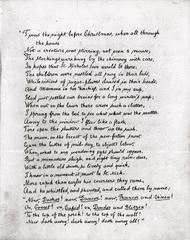 'Twas the night before Christmas, when all through
the house
Not a creature was stirring, not even a mouse;
The stockings were hung by the chimney with care,
In hopes that St. Nicholas soon would be there;
The children were nestled all snug in their beds,
While visions of sugar-plums danced in their heads;
And Mamma in her 'kerchief, and I in my cap,
Had just settled our brains for a long winter's nap;
When out on the lawn there arose such a clatter,
I sprang from the bed to see what was the matter.
Away to the window I flew like a flash,
Tore open the shutters and threw up the sash.
The moon on the breast of the new-fallen snow
Gave the lustre of mid-day to objects below,
When, what to my wondering eyes should appear,
But a miniature sleigh, and eight tiny rein-deer,
With a little old driver, so lively and quick,
I knew in a moment it must be St. Nick.
More rapid than eagles his coursers they came,
And he whistled, and shouted, and called them by name;
"Now, Dasher! now, Dancer! now, Prancer and Vixen!
On, Comet! on, Cupid! on, Donder and Blitzen!
To the top of the porch! to the top of the wall!
Now dash away! dash away! dash away all!"